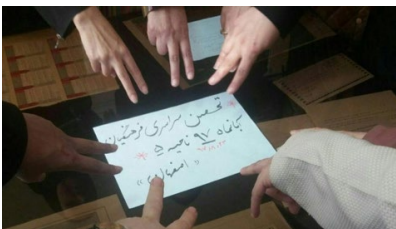 تحصن سراسری فرهنگیان
آبانماه ۹۷ ناحیه ۵
"اصفهان"